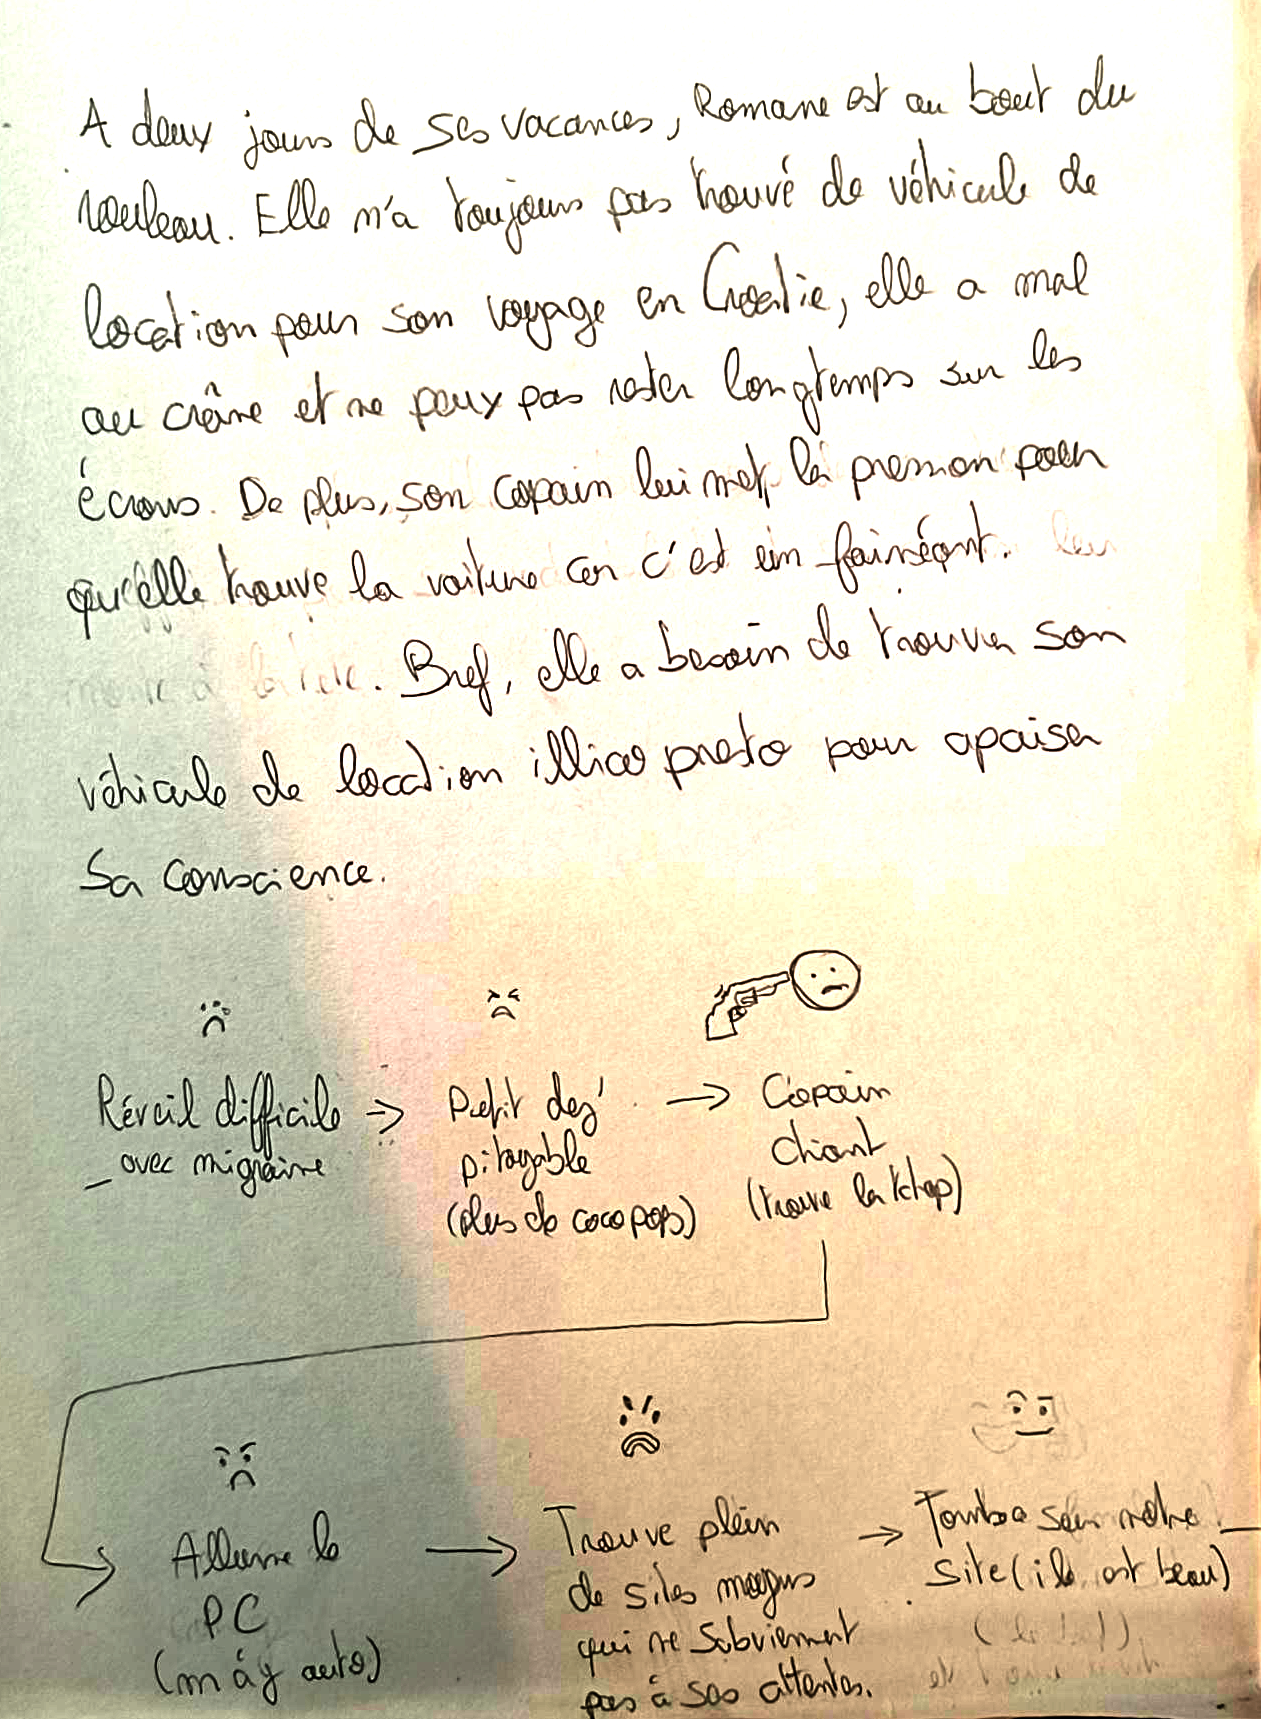 A deux jours de ses vacances, Romane est au bout du
rouleau. Elle n'a toujours pas trouvé de véhicule de
location pour son voyage en Croatie, elle a mal
au crâne et ne peux pas rester longtemps sur les
écrans. De plus, son copain lui met la pression pour
qu'elle trouve la voiture car c'est un fainéant.
Bref, elle a besoin de trouver son
véhicule de location illico presto pour apaiser
sa conscience.
Réveil difficile → Petit dej' → Copain
avec migraine pitoyable chiant
(plus de coco pops) (trouve la tchop)
Allume le → Trouve plein → Tombe sur notre
PC de sites site (il est beau)
(màj auto) qui ne subviennent
pas à ses attentes.